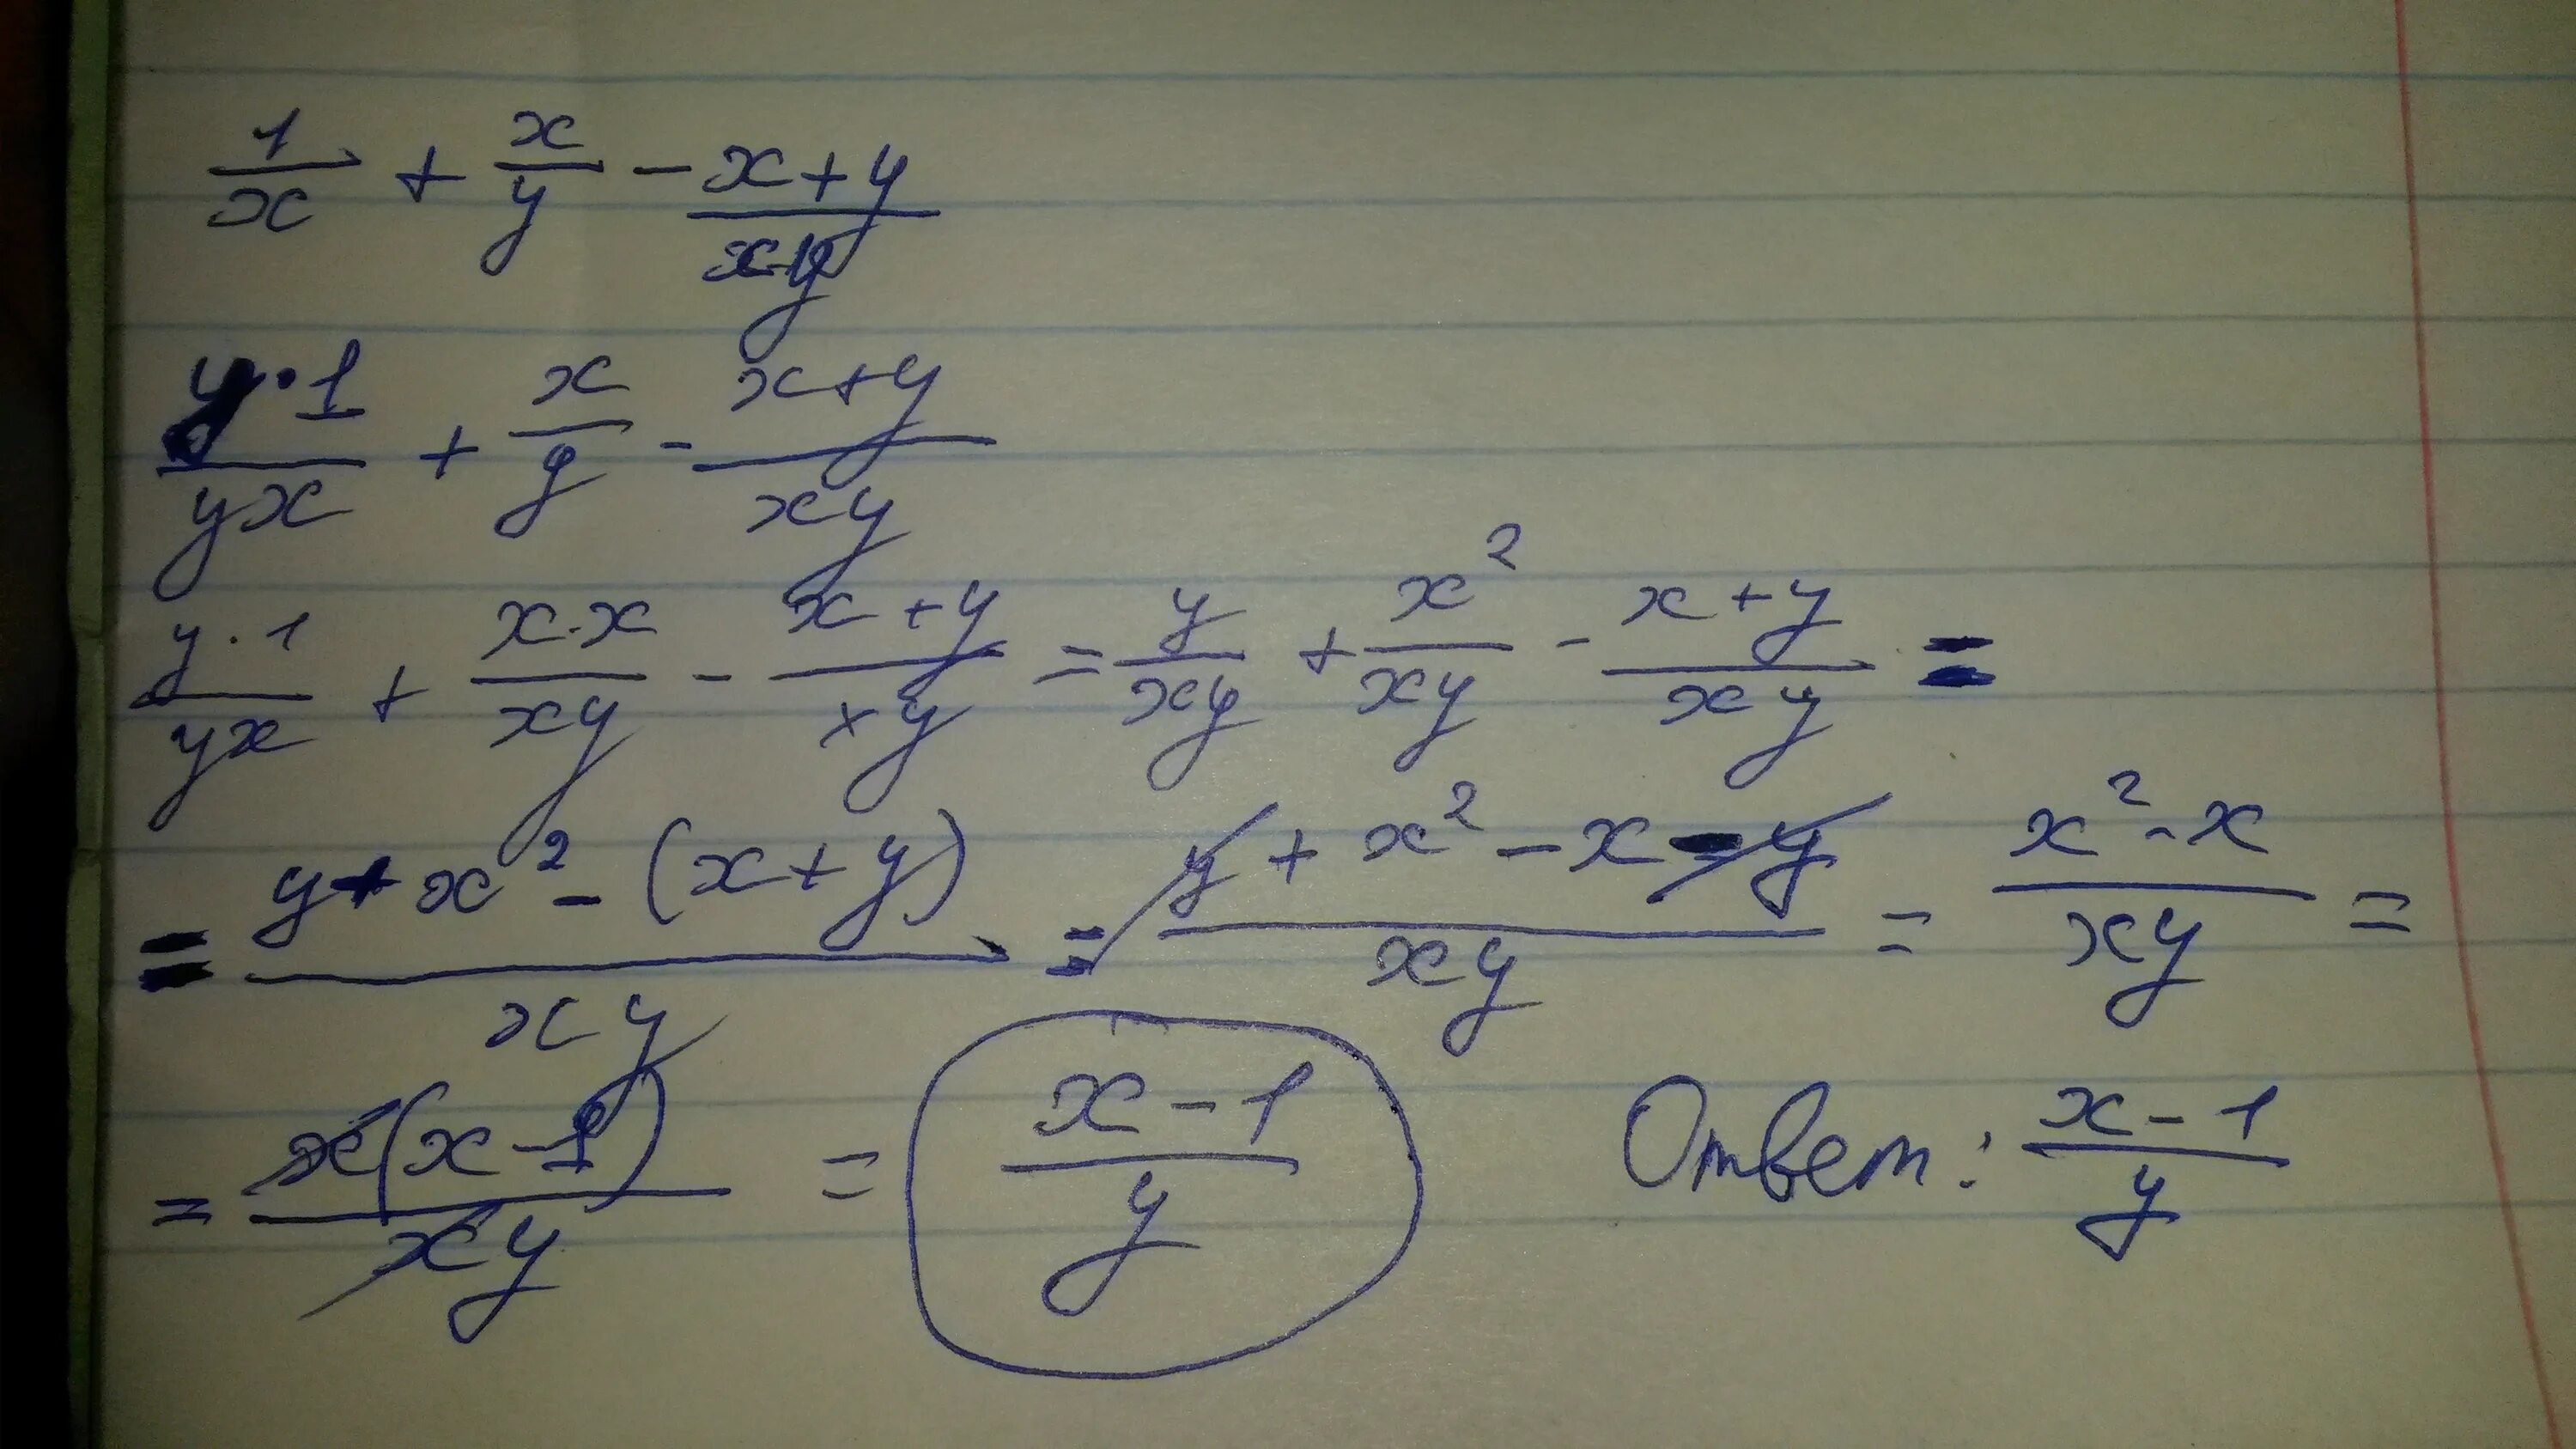 1/x + x/y - x+y/xy
y·1/yx + x/y - x+y/xy
y·1/yx + x·x/xy - x+y/xy = y/xy + x²/xy - x+y/xy =
= y+x²-(x+y)/xy = y+x²-x-y/xy = x²-x/xy =
= x(x-1)/xy = x-1/y Ответ: x-1/y